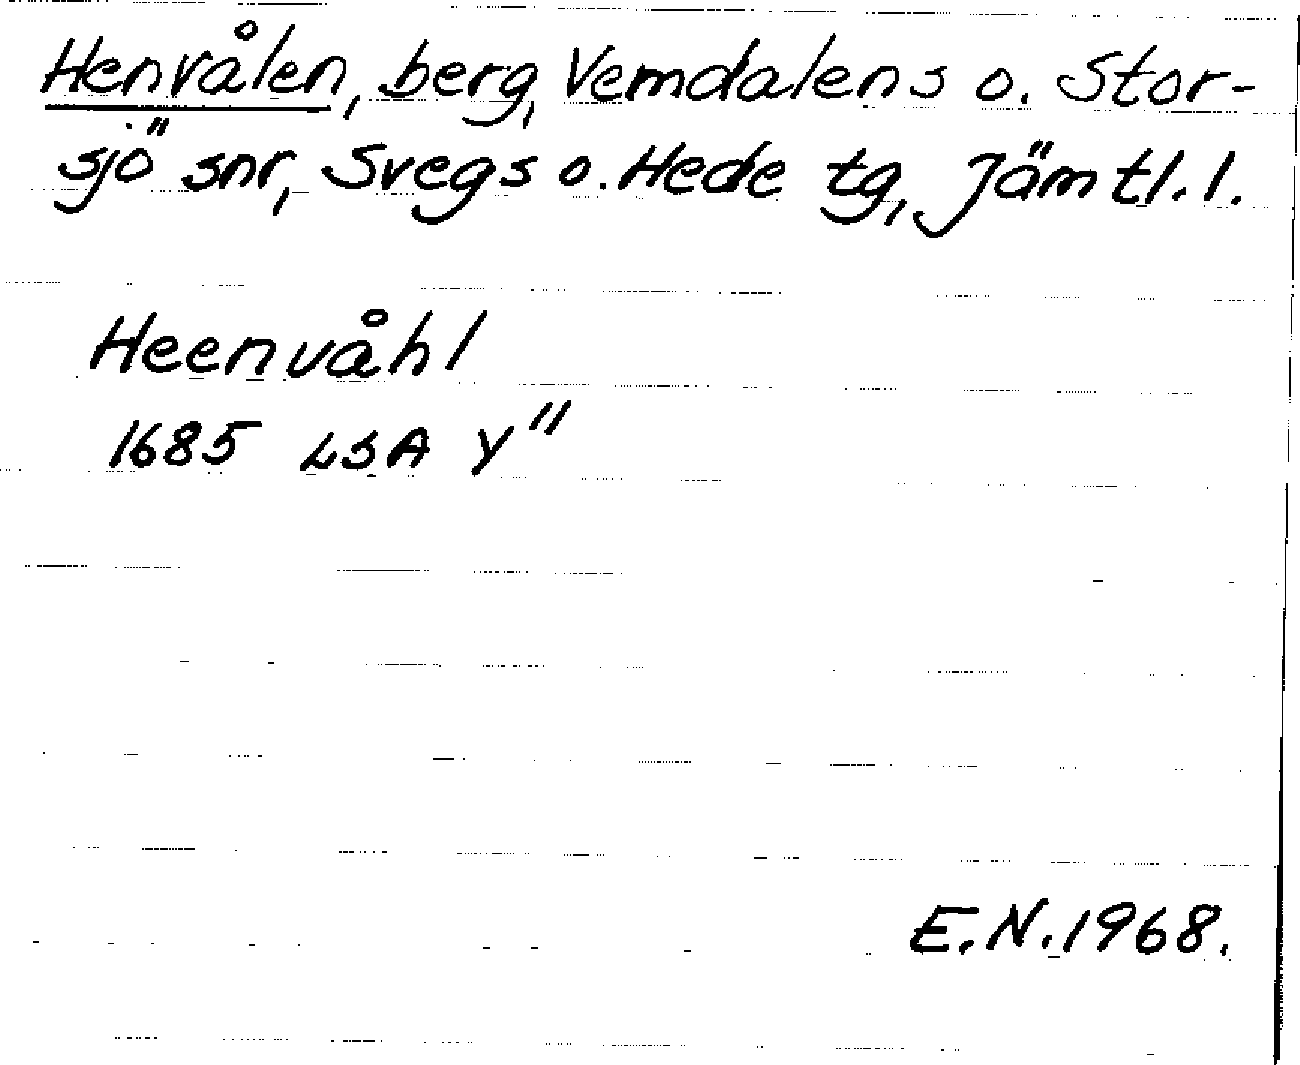 Henvålen, berg, Vemdalens o. Stor-
sjö snr, Svegs o. Hede tg, Jämtl. l.
Heenvåhl
1685 LSA Y"
E.N. 1968.